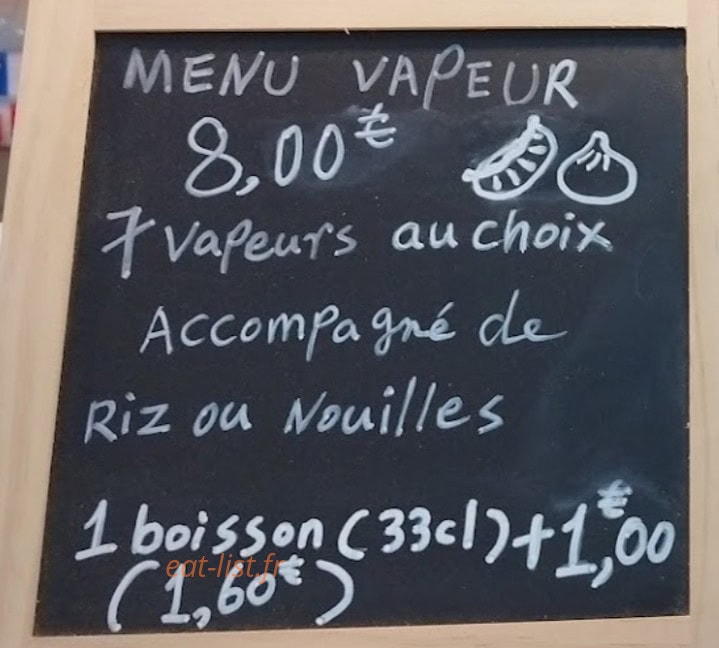 MENU VAPEUR
8,00€
7 vapeurs au choix
Accompagné de
Riz ou Nouilles
1 boisson (33cl) + 1,00€
(1,60€)
eat-list.fr